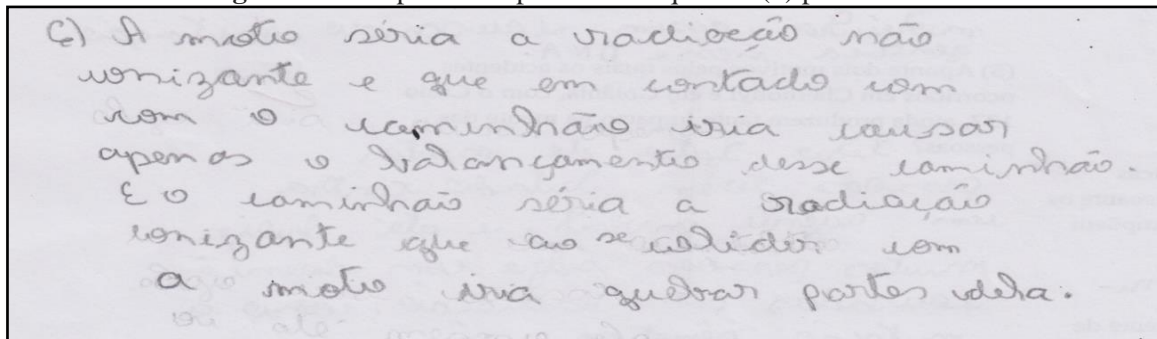 C) A moto séria a radioação não
ionizante e que em contado com
com o caminhão iria causar
apenas o balançamento desse caminhão.
E o caminhão séria a radiação
ionizante que ao se colidir com
a moto iria quebrar partes dela.